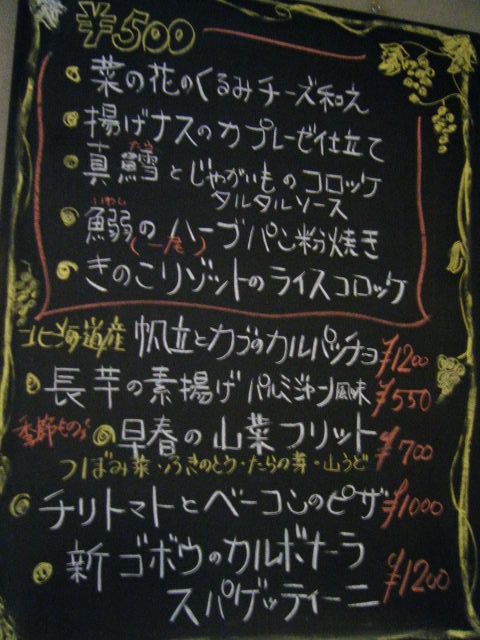 ¥500
菜の花のくるみチーズ和え
揚げナスのカプレーゼ仕立て
たら
真鱈とじゃがいものコロッケ
タルタルソース
いわし
鰯の(一尾)ハーブパン粉焼き
きのこリゾットのライスコロッケ
北海道産 帆立とカブのカルパッチョ ¥1200
長芋の素揚げ パルミジャーノ風味 ¥550
季節もの 早春の山菜フリット ¥700
つぼみ菜・ふきのとう・たらの芽・山うど
チリトマトとベーコンのピザ ¥1000
新ゴボウのカルボナーラ
スパゲッティーニ ¥1200